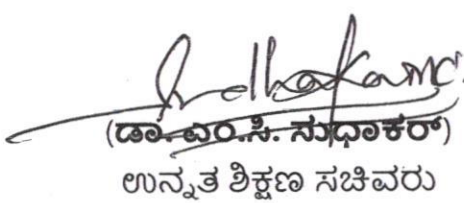 (ಡಾ. ಎಂ.ಸಿ. ಸುಧಾಕರ್)
ಉನ್ನತ ಶಿಕ್ಷಣ ಸಚಿವರು